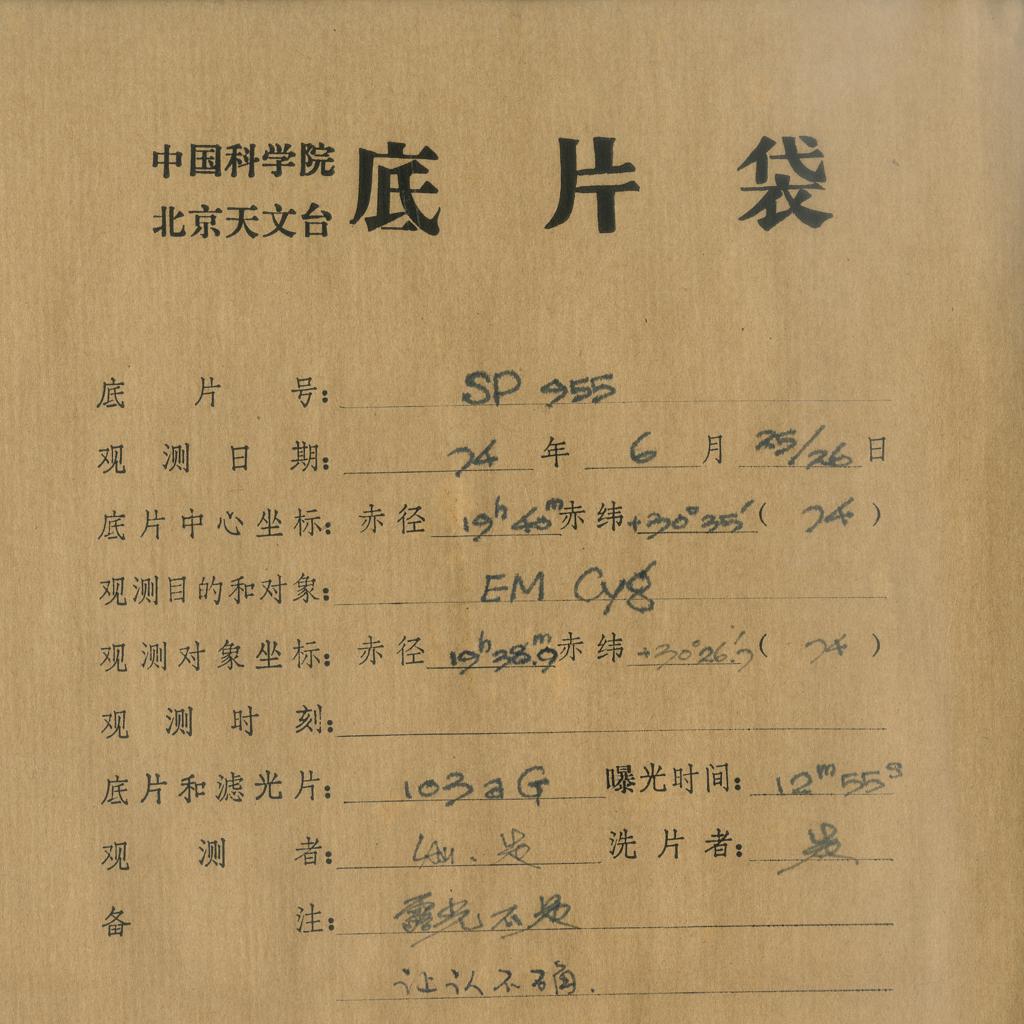 中国科学院
北京天文台
底片袋
底片号: SP 955
观测日期: 74年 6月 25/26日
底片中心坐标: 赤径 19h 40m 赤纬 +30°35′ ( 74 )
观测目的和对象: EM Cyg
观测对象坐标: 赤径 19h 38.m9 赤纬 +30°26.′7 ( 74 )
观测时刻:
底片和滤光片: 103aG 曝光时间: 12m 55s
观测者:
洗片者:
备注: 露光不足
让认不确.